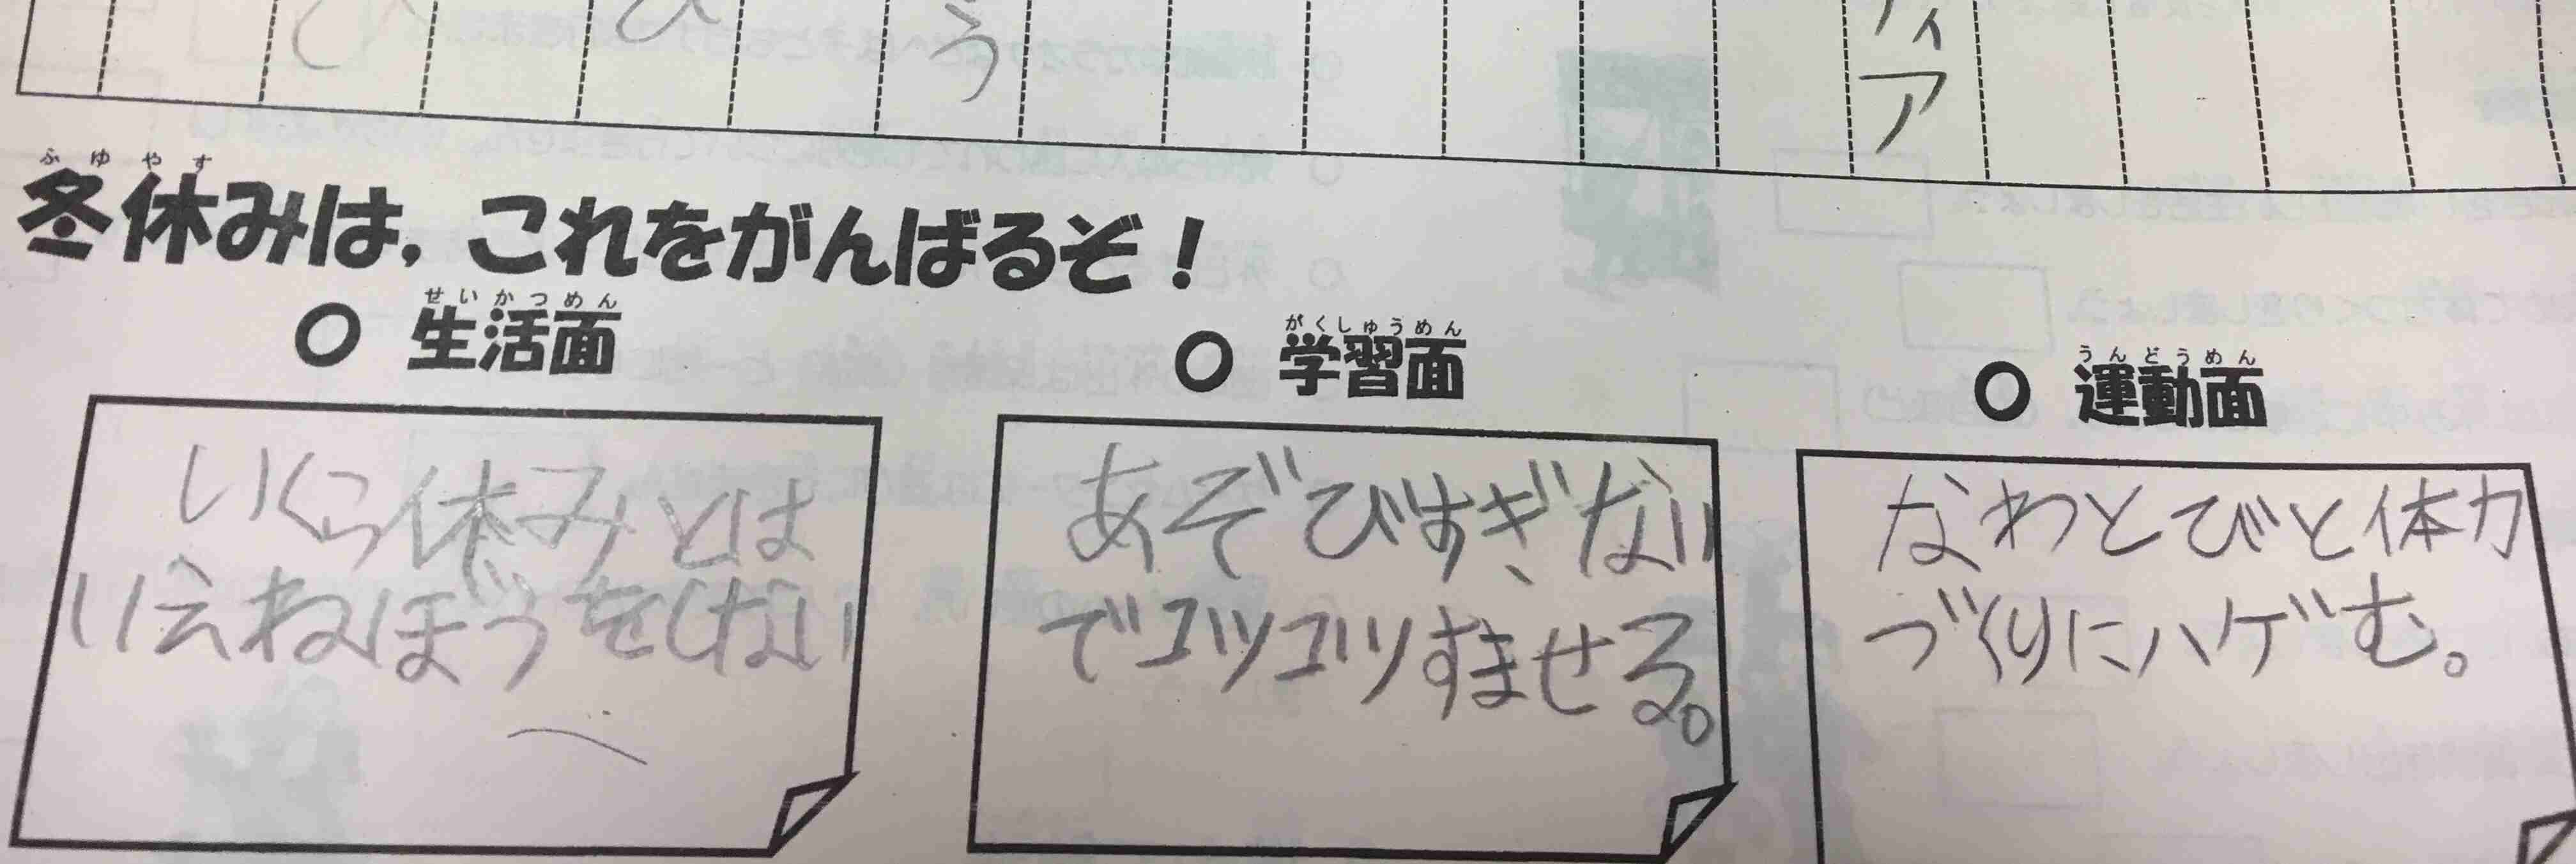 う
ィ
ア
ふゆやす
冬休みは，これをがんばるぞ！
せいかつめん
○ 生活面
がくしゅうめん
○ 学習面
うんどうめん
○ 運動面
いくら休みとは
い会ねぼうをしない
あそびすぎない
でコツコツすませる。
なわとびと体力
づくりにハゲむ。